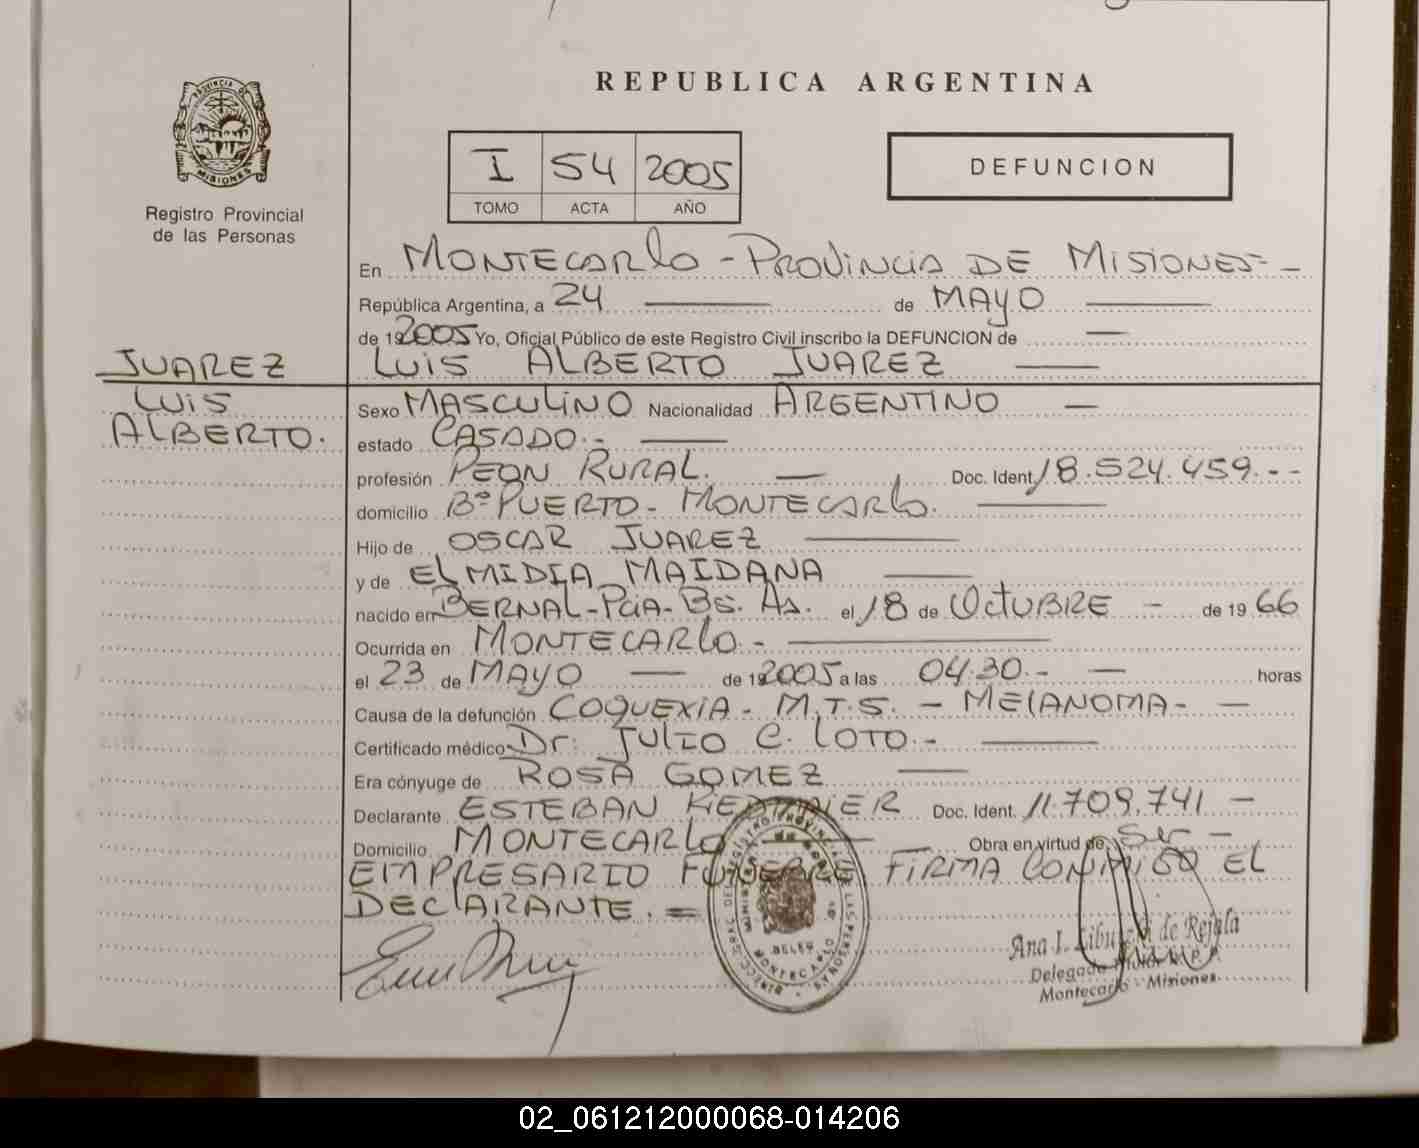 REPUBLICA ARGENTINA
PROVINCIA DE
MISIONES
Registro Provincial
de las Personas
I 54 2005
TOMO ACTA AÑO
DEFUNCION
En MONTECARLO - PROVINCIA DE MISIONES -
República Argentina, a 24 de MAYO
de 19 2005 Yo, Oficial Público de este Registro Civil inscribo la DEFUNCION de
LUIS ALBERTO JUAREZ
JUAREZ
LUIS
ALBERTO.
Sexo MASCULINO Nacionalidad ARGENTINO
estado CASADO.-
profesión PEON RURAL. Doc. Ident. 18.524.459.--
domicilio Bº PUERTO - MONTECARLO.
Hijo de OSCAR JUAREZ
y de ELMIDIA MAIDANA
nacido en BERNAL-PCIA-BS. AS. el 18 de OCTUBRE - de 19 66
Ocurrida en MONTECARLO -
el 23 de MAYO de 19 2005 a las 04.30.- horas
Causa de la defunción COQUEXIA - M.T.S. - MELANOMA -
Certificado médico Dr. JULIO C. LOTO.-
Era cónyuge de ROSA GOMEZ
Declarante ESTEBAN Doc. Ident. 11.709.741 -
Domicilio MONTECARLO Obra en virtud de Ser -
EMPRESARIO FUNEBRE FIRMA CONMIGO EL
DECLARANTE. =
Ana I. de Rejala
Delegada
Montecarlo - Misiones
02_061212000068-014206